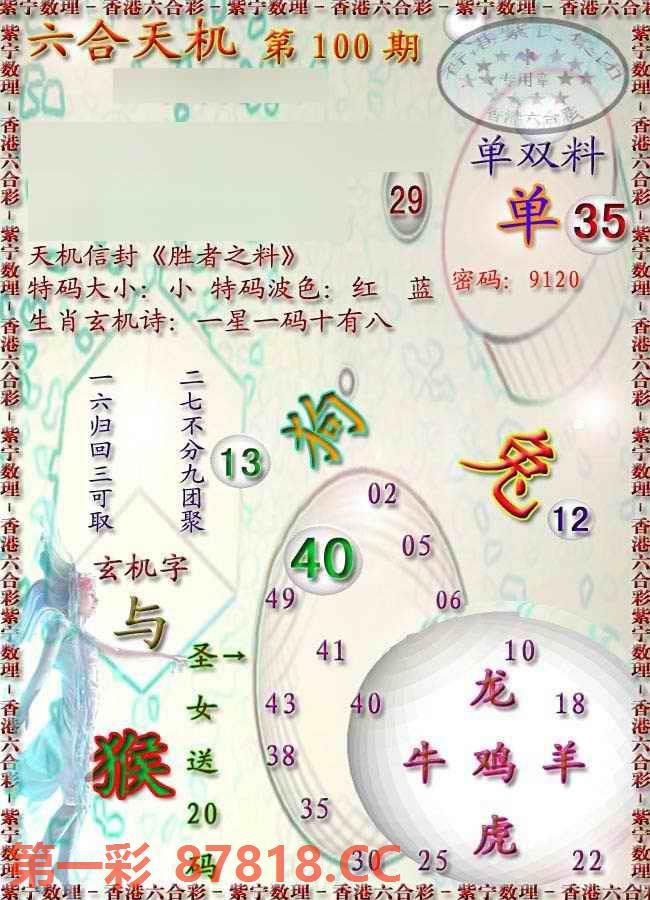 紫宁数理－香港六合彩－紫宁数理－香港六合彩－紫宁数理－香港六合彩
六合天机 第100期
专用章
香港六合彩
单双料
单 35
29
天机信封《胜者之料》
特码大小：小 特码波色：红 蓝
密码：9120
生肖玄机诗：一星一码十有八
一六归回三可取
二七不分九团聚
13
狗
兔
12
02
40
05
49
06
玄机字
与
41
10
圣女送20码
→
43
40
龙
18
猴
38
牛 鸡 羊
35
虎
30
25
22
第一彩 87818.CC
紫宁数理－香港六合彩－紫宁数理－香港六合彩－紫宁数理－香港六合彩